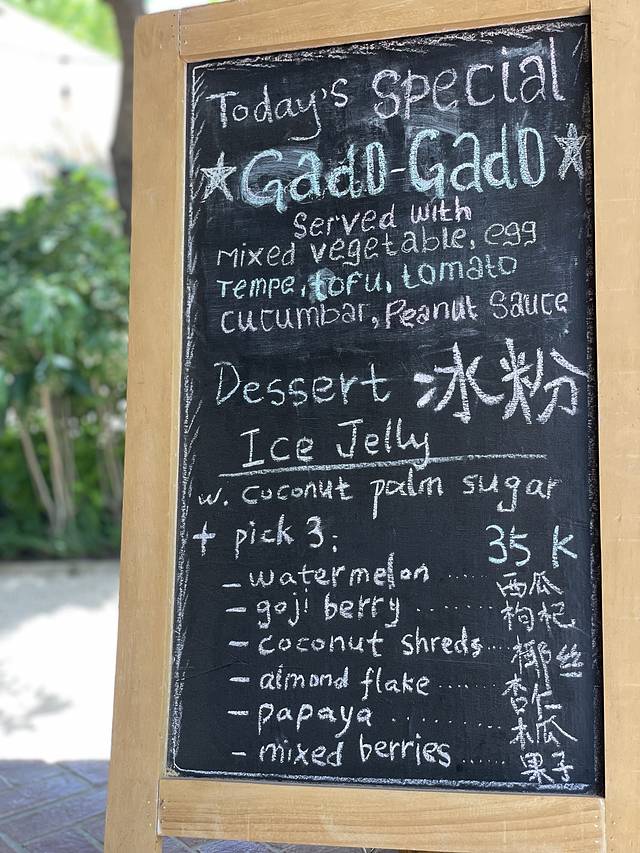 Today's Special
Gado-Gado
Served with
mixed vegetable, egg
Tempe, tofu, tomato
cucumbar, Peanut Sauce
Dessert 冰粉
Ice Jelly
w. coconut palm sugar
+ pick 3: 35 K
- watermelon ..... 西瓜
- goji berry ....... 枸杞
- coconut shreds... 椰丝
- almond flake ...... 杏仁
- papaya ......... 木瓜
- mixed berries...... 果子